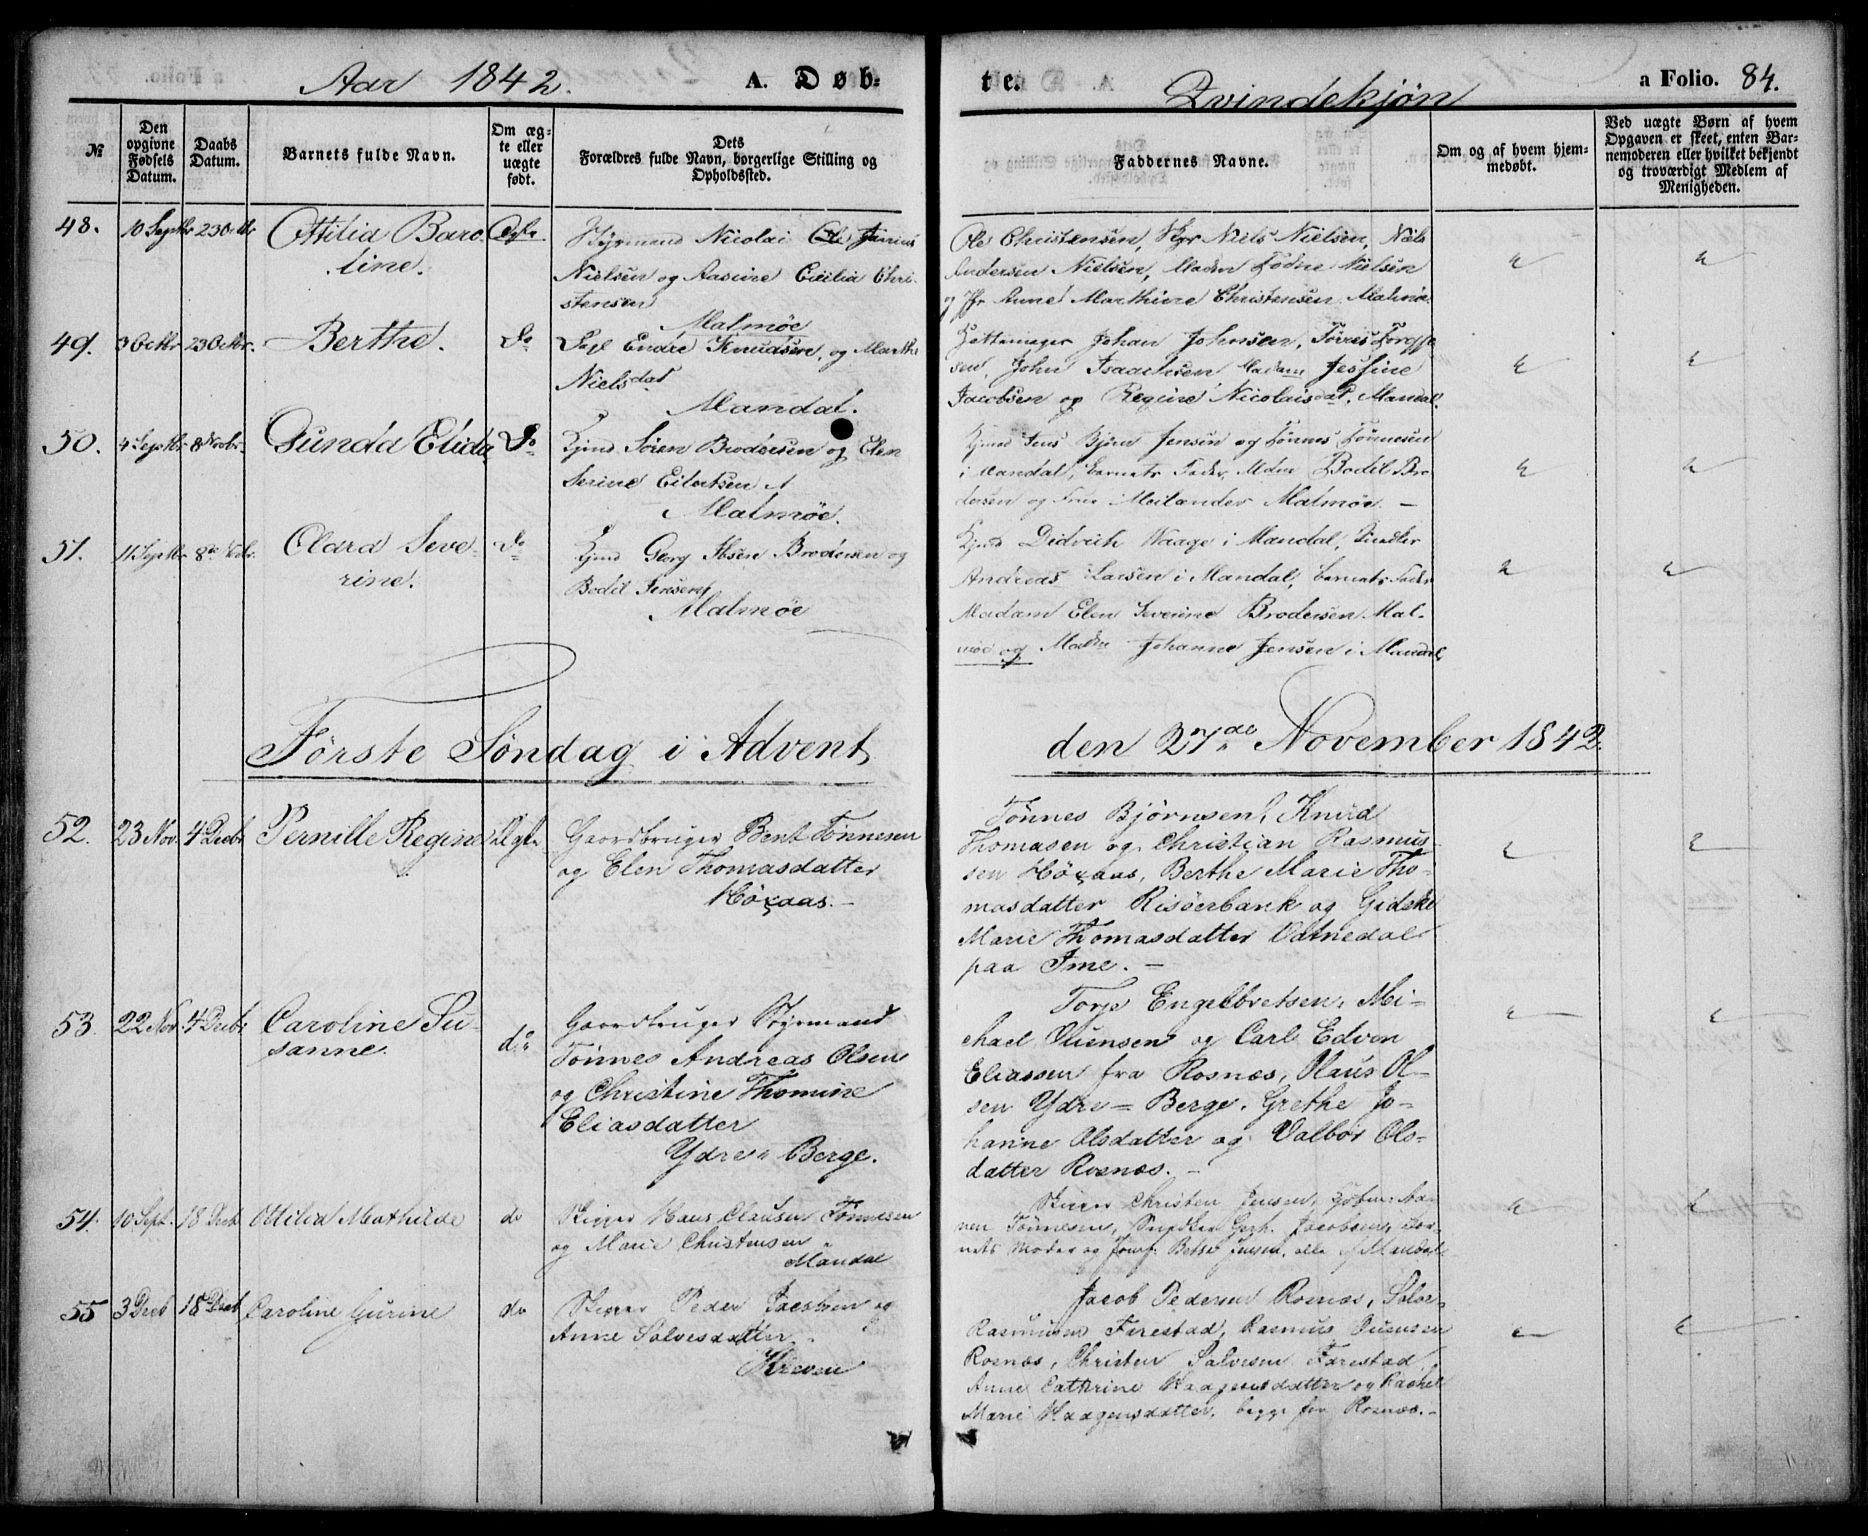 Aar 1842. A. Døb-
te. Qvindekjøn a Folio. 84.
№
Den opgivne Fødsels Datum.
Daabs Datum.
Barnets fulde Navn.
Om ægte eller uægte født.
Dets Forældres fulde Navn, borgerlige Stilling og Opholdssted.
Faddernes Navne.
Om og af hvem hjemmedøbt.
Ved uægte Børn af hvem Opgaven er skeet, enten Barnemoderen eller hvilket bekjendt og troværdigt Medlem af Menigheden.
48. 10 Septbr 23 Octbr Ottilia Baro-
line.
Ægte
Styrmand Nicolai Junius
Nielsen og Aasine Cicilia Chri-
stensen
Malmøe
Ole Christensen, Niels Nielsen, Niels
Andersen Nielsen, Madm Nielsen
og Jfr Anne Marthine Christensen Malmø
49. 3 Octbr 23 Octbr. Berthe. Do
Endre Knudsen, og Marthe
Nielsdat
Mandal.
Hattemager Johan Johnsen,
sen, John Isaachsen Madam Jessine
Jacobsen og Regine Nicolaisdat, Mandal.
50. 4 Septbr 8 Novbr. Gunda Elida Do
Kjmd Sören Brodersen og Elen
Serine Eilertsen
Malmöe.
Kjmd Jens Björn Jensen og Tönnes Tönnesen
i Mandal, barnets Fader, Mdm Bodil Bro-
dersen og Malmöe. —
51. 11 Septbr 8de Clara Seve-
rine.
Do
Kjmd Georg Ibsen Brodersen og
Bodil Jensen
Malmöe
Kjmd Didrich Waage i Mandal,
Andreas Larsen i Mandal, barnets Fader
Madam Elen Severine Brodersen Mal-
möe og Madm Johanne Jensen i Mandal
Første Søndag i Advent
den 27de November 1842.
52. 23 Nov. 4 Decbr Pernille Regine Ægte
Gaardbruger Bent Tönnesen
og Elen Thomasdatter
Höxaas. —
Tönnes Björnsen, Knud
Thomasen og Christian Rasmus-
sen Höxaas, Berthe Marie Tho-
masdatter Risöerbank og Gidske
Marie Thomasdatter Vatnedal
paa Ime. —
53. 22 Nov 4 Decbr Caroline Su-
sanne.
do
Gaardbruger Styrmand
Tönnes Andreas Olsen
og Christine Thomine
Eliasdatter
Ydre Berge.
Torje Engelbretsen, Mi-
chael Ouensen og Carl Edven
Eliassen fra Rosnæs, Olaus Ol-
sen Ydre = Berge, Grethe Jo-
hanne Olsdatter og Valbor Ols-
datter Rosnæs. —
54. 10 Sept. 18 Decb Ottilia Mathilde do
Skipper Hans Clausen Tönnesen
og Marie Christensen
Mandal
Skipper Christen Jensen,
nen Tönnesen, Jacobsen, Bar-
nets Moder og Jomf: Betse Jensen, alle af Mandal
55 3 Decb 18 Decb Caroline Gurine do
Skipper Peder Jacobsen og
Anne Salvesdatter
Kleven
Jacob Pedersen Rosnæs, Salve
Rasmusen Farestad, Rasmus Ouensen
Rosnæs, Christen Salvesen Farestad
Anne Cathrine Haagensdatter og Rachel
Marie Haagensdatter, begge fra Rosnæs. —